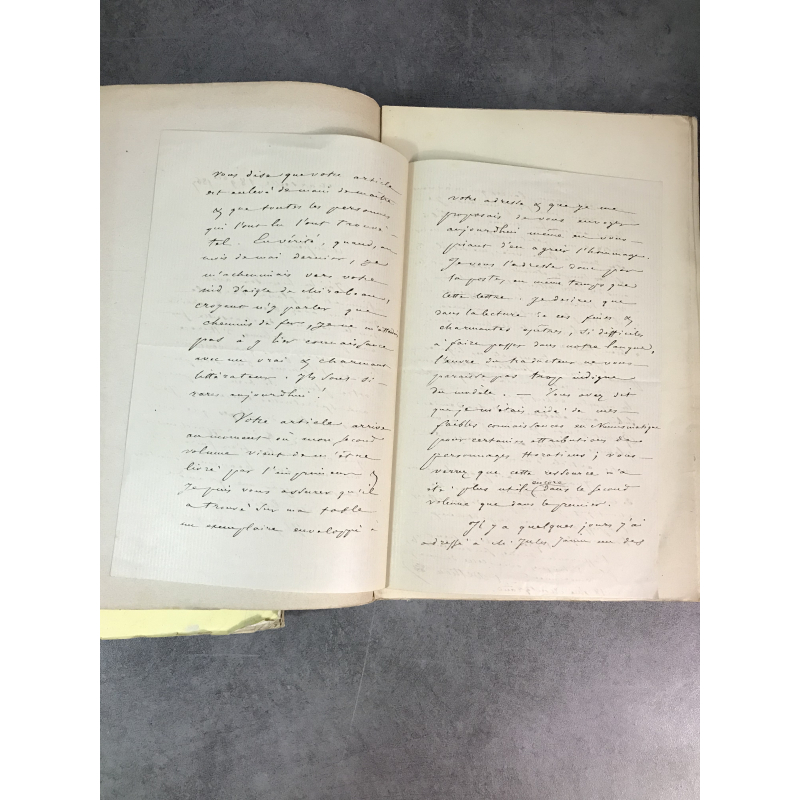 vous dise que votre article
est enlevé de main de maître
& que toutes les personnes
qui l'ont lu l'ont trouvé
tel. En vérité, quand, au
mois de mai dernier, je
m'acheminais vers votre
nid d'aigle de Mirabeau,
croyant n'y parler que
chemins de fer, je ne m'attendais
pas à y lier connaissance
avec un vrai & charmant
littérateur. Ils sont si
rares aujourdhui!
Votre article arrive
au moment où mon second
volume vient de m'être
livré par l'imprimeur &
je puis vous assurer qu'il
a trouvé sur ma table
un exemplaire enveloppé à
votre adresse & que je me
proposais de vous envoyer
aujourdhui même en vous
priant d'en agréer l'hommage.
Je vous l'adresse donc par
la poste, en même temps que
cette lettre. Je desire que
dans la lecture de ces fines &
charmantes épîtres, si difficiles
à faire passer dans notre langue,
l'œuvre du traducteur ne vous
paraisse pas trop indigne
du modèle. — Vous avez dit
que je m'étais aidé de mes
faibles connaissances en Numismatique
pour certaines attributions de
personnages Horatiens; vous
verrez que cette ressource m'a
été plus utile encore dans le second
volume que dans le premier.
Il y a quelques jours j'ai
adressé à M. Jules Janin un des